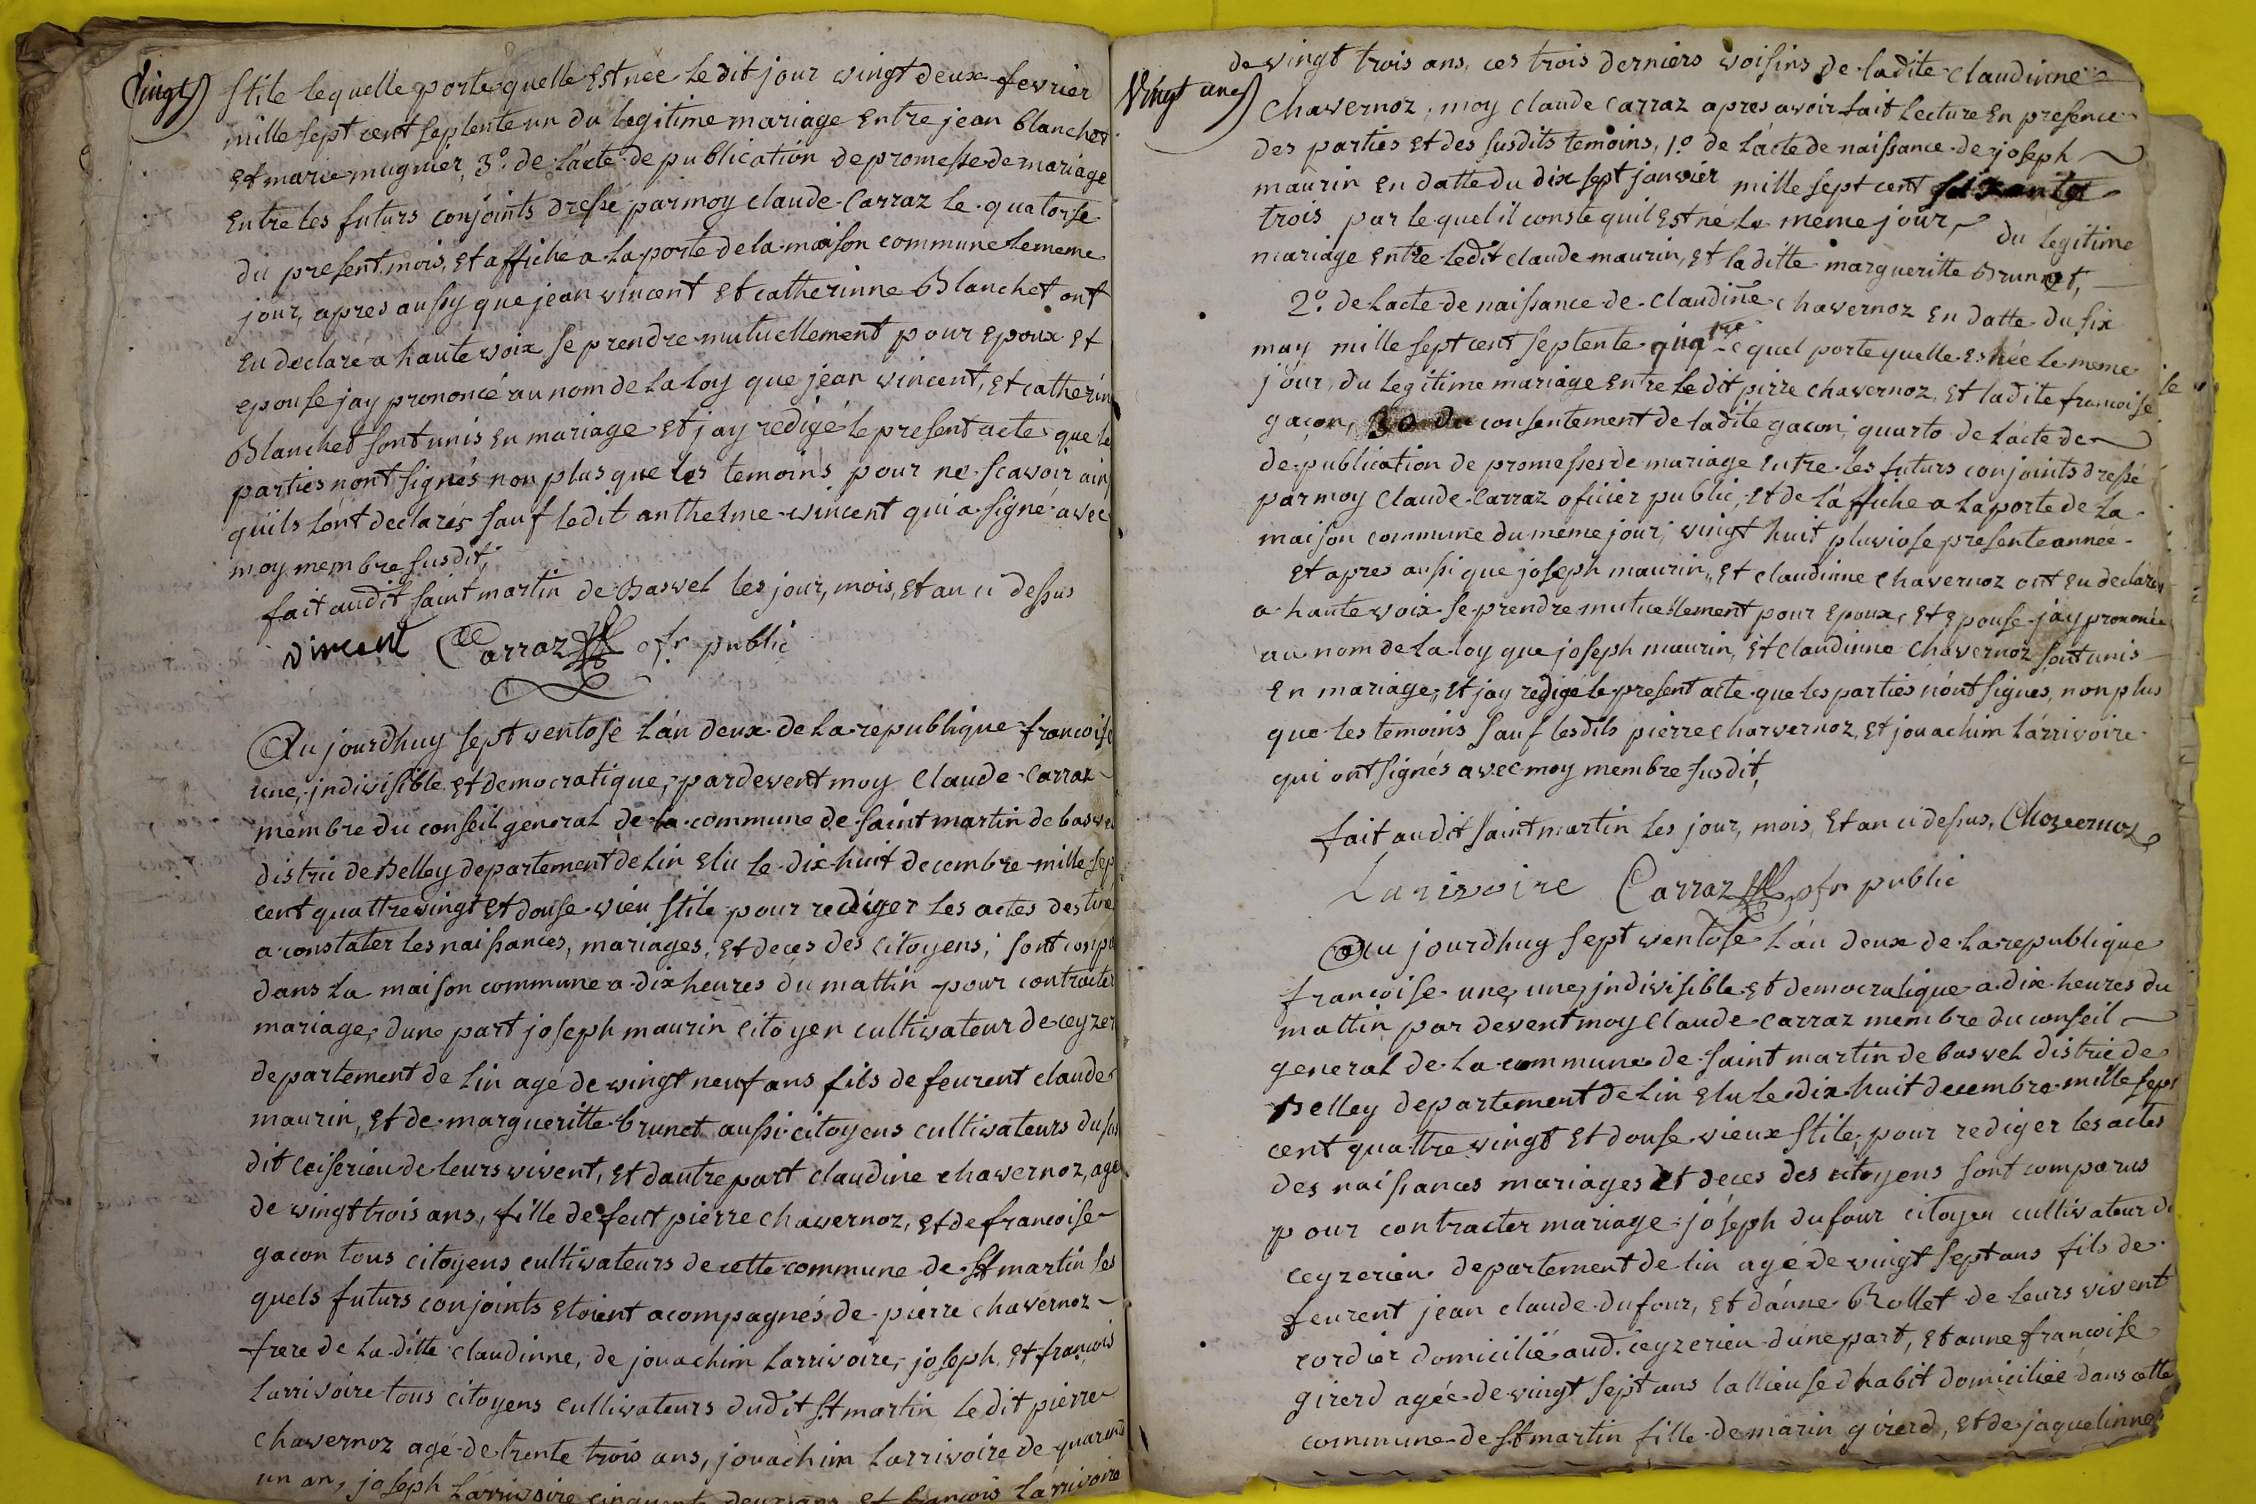 Vingt
stile lequelle porte quelle Est née le dit jour vingt deux fevrier
mille sept cent septente un du legitime mariage Entre jean Blanchet
Et marie mugnier, 3.° de lácte de publication de promesse de mariage
Entre les futurs conjoints dressé par moy claude Carraz le quatorse
du present mois, Et affiché a la porte de la maison commune le meme
jour, apres aussy que jean vincent Et catherinne Blanchet ont
Eu declaré a haute voix se prendre mutuellement pour Epoux Et
Epouse jay prononcé au nom de la loy que jean vincent, Et catherin
Blanchet sont unis En mariage Et jay redigé le present acte que le
parties nont signés non plus que les temoins pour ne scavoir ains
quils lónt declarés sauf ledit anthelme vincent qui a signé avec
moy membre susdit,
fait audit saint martin de Bavel les jour, mois, Et an ci dessus
vincent Carraz ofr public
Au jourdhuy sept ventose lán deux de la republique francoise
une, indivisible Et democratique, pardevent moy Claude Carraz
membre du conseil general de la commune de saint martin de bavel
distric de Belley departement de lin Elu le dix huit decembre mille sep
cent quattrevingt Et douse vieu stile pour rediger les actes destiné
a constater les naissances, mariages, Et deces des citoyens, sont compa
dans la maison commune a dix heures du mattin pour contracter
mariage, dune part joseph maurin citoyen cultivateur de ceyzer
departement de lin agé de vingt neuf ans fils de feurent claude
maurin, Et de margueritte brunet aussi citoyens cultivateurs du sus
dit Ceiserieu de leurs vivent, Et dautre part claudine chavernoz, agé
de vingt trois ans, fille de feut pierre chavernoz, Et de francoise
gacon tous citoyens cultivateurs de cette commune de St martin les
quels futurs conjoints Etoient acompagnés de pierre chavernoz
frere de la ditte claudinne, de jouachim Larrivoire, joseph, Et françois
Larrivoire tous citoyens cultivateurs dudit St martin le dit pierre
chavernoz agé de trente trois ans, jouachim Larrivoire de quarente
un an, joseph Lárrivoire cinquente deux ans, Et françois Lárrivoire
Vingt une
de vingt trois ans, ces trois derniers voisins de ladite claudinne
Chavernoz, moy claude Carraz apres avoir fait lecture En presence
des parties Et des susdits temoins, 1.° de lácte de naissance de joseph
maurin En datte du dix sept janvier mille sept cent soixante
trois par lequel il conste quil Est né le meme jour, du legitime
mariage Entre ledit claude maurin, Et la ditte margueritte Brunet,
2.° de lacte de naissance de claudine chavernoz En datte du six
may mille sept cent septente lequel porte quelle Est née le meme
jour, du legitime mariage Entre le dit pirre chavernoz, Et ladite francoise
gaçon, 3° du consentement de ladite gacon, quarto de lácte de
de publication de promesses de mariage Entre les futurs conjoints dressé
par moy Claude Carraz oficier public, Et de láffiche a la porte de la
maison commune du meme jour, vingt huit pluviose presente année
Et apres aussi que joseph maurin, Et claudinne chavernoz ont Eu declaré
a haute voix se prendre mutuellement pour Epoux, Et Epouse jáy prononcé
au nom de la loy que joseph maurin, Et claudinne Chavernoz sont unis
En mariage, Et jay redigé le present acte que les parties nónt signés, non plus
que les temoins sauf lesdits pierre charvernoz, Et jouachim lárrivoire
qui ont signés avec moy membre susdit,
fait audit saint martin les jour, mois, Et an ci dessus, Chavernoz
Larivoire Carraz ofr public
Au jourdhuy sept ventose lán deux de la republique
francoise une, une, indivisible Et democratique a dix heures du
mattin par devent moy Claude Carraz membre du conseil
general de la commune de saint martin de bavel distric de
Belley departement de lin Elu le dix huit decembre mille sept
cent quattre vingt Et douse vieux stile, pour rediger les actes
des naissances mariages Et deces des citoyens sont comparus
pour contracter mariage joseph dufour citoyen cultivateur de
ceyzerieu departement de lin agé de vingt sept ans fils de
feurent jean claude dufour, Et dánne Rollet de leurs vivent
cordier domicilié aud. ceyzerieu dúne part, Et anne francoise
girerd agée de vingt sept ans tallieuse dhabit domiciliée dans cette
commune de St martin fille de marin girerd, Et de jaquelinne